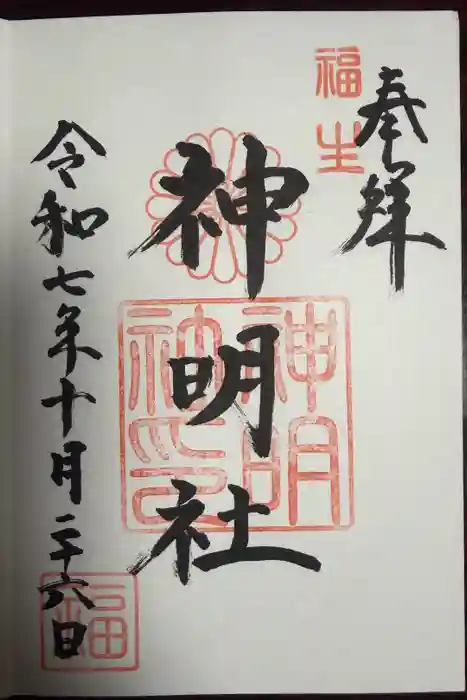 奉拝
福生
神明社
神明社印
令和七年十月二十六日
福